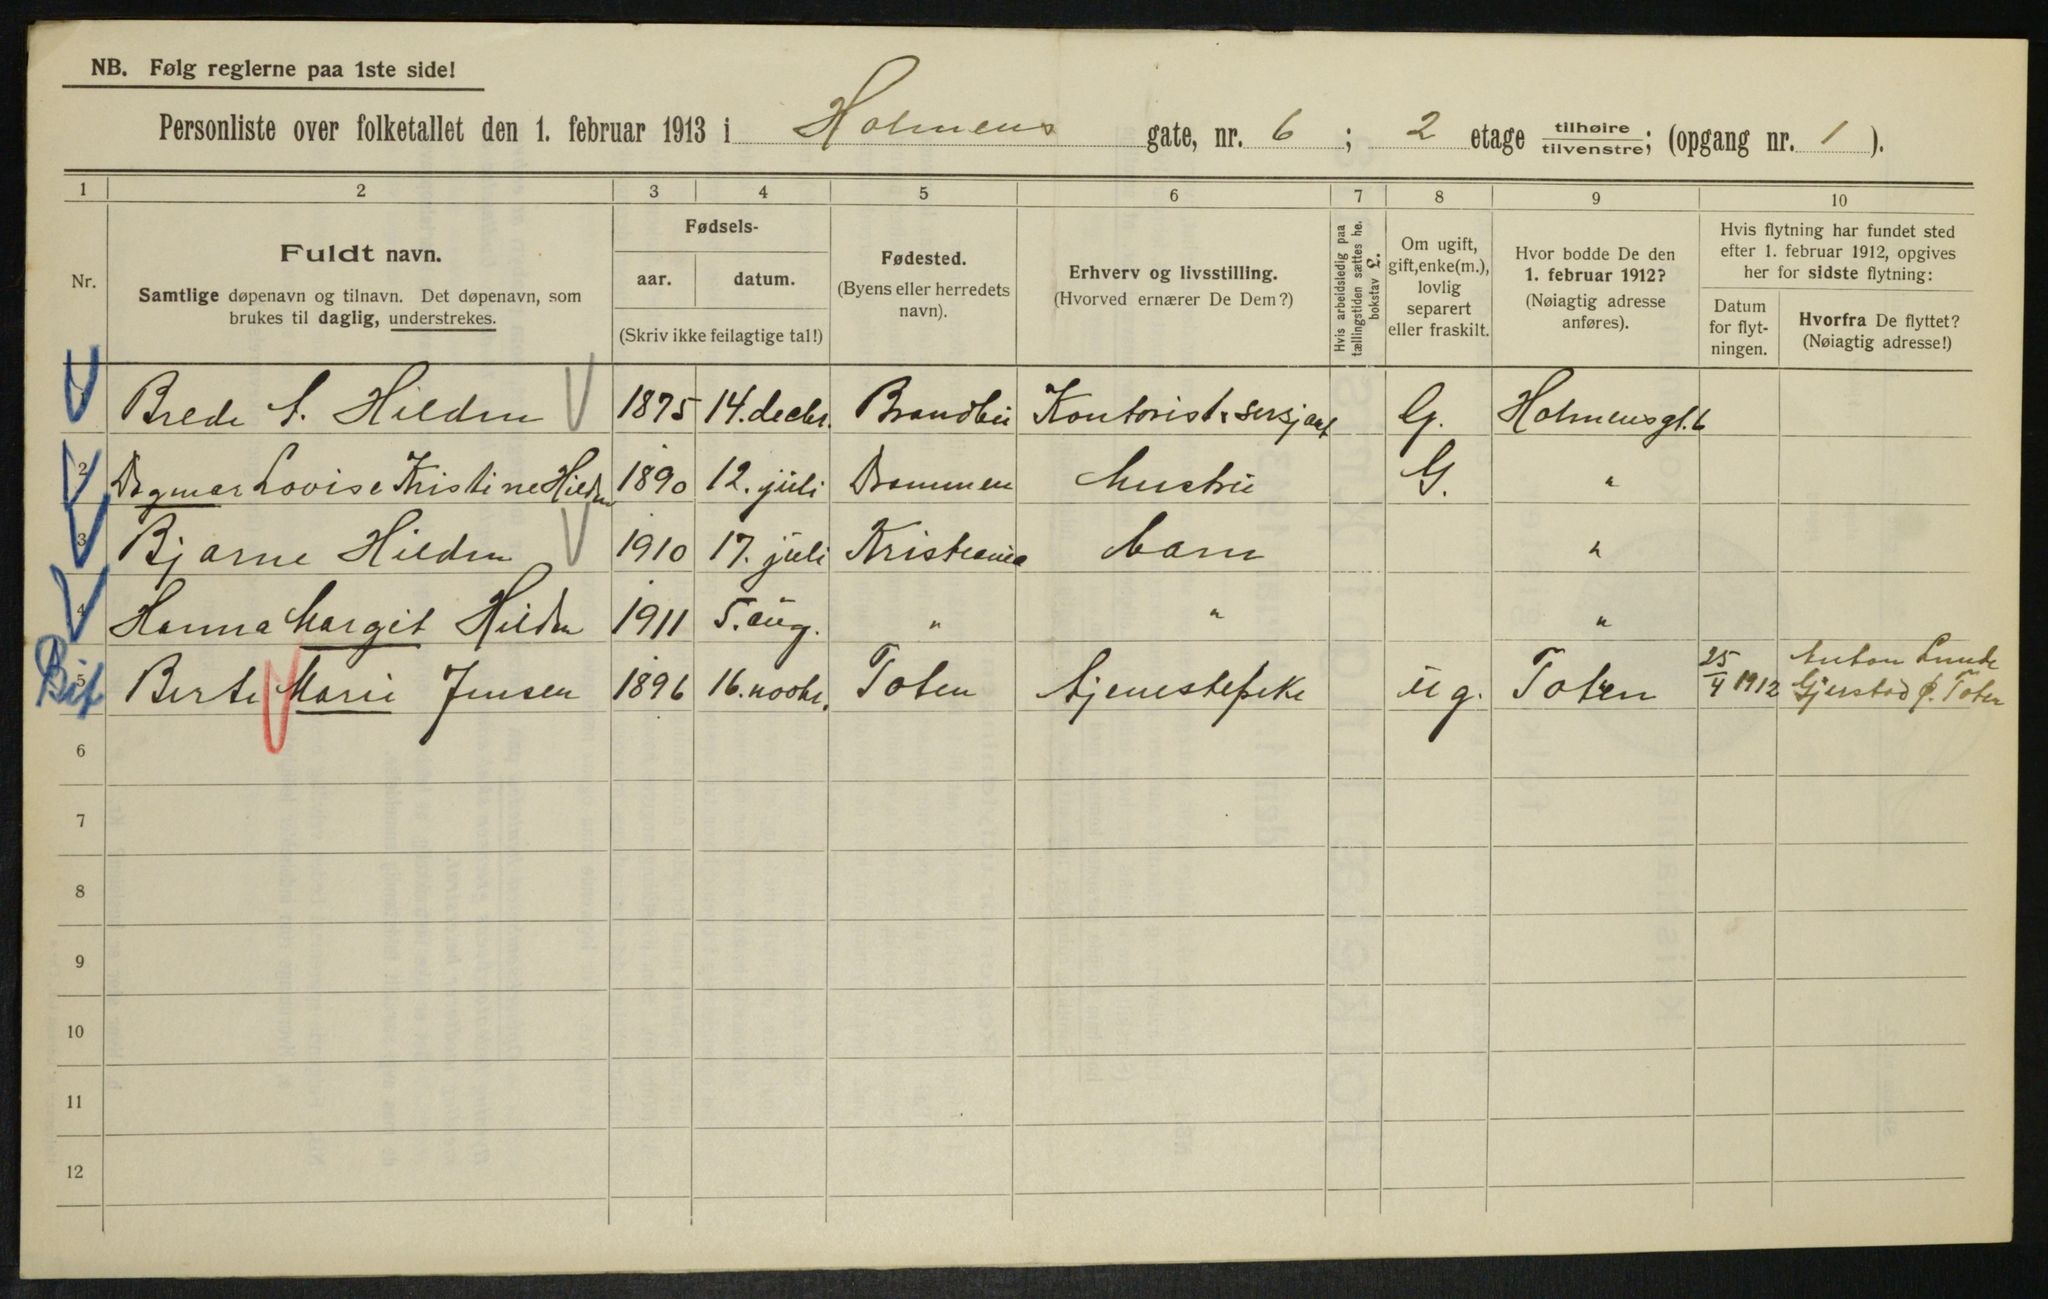 NB. Følg reglerne paa 1ste side!
Personliste over folketallet den 1. februar 1913 i Holmens gate, nr. 6 ; 2 etage tilhøire/tilvenstre; (opgang nr. 1 ).
1 2 3 4 5 6 7 8 9 10
Nr.
Fuldt navn.
Samtlige døpenavn og tilnavn. Det døpenavn, som
brukes til daglig, understrekes.
Fødsels-
aar. datum.
(Skriv ikke feilagtige tal!)
Fødested.
(Byens eller herredets
navn).
Erhverv og livsstilling.
(Hvorved ernærer De Dem?)
Hvis arbeidsledig paa
tællingstiden sættes he.
bokstav L.
Om ugift,
gift, enke(m.),
lovlig
separert
eller fraskilt.
Hvor bodde De den
1. februar 1912?
(Nøiagtig adresse
anføres).
Hvis flytning har fundet sted
efter 1. februar 1912, opgives
her for sidste flytning:
Datum
for flyt-
ningen.
Hvorfra De flyttet?
(Nøiagtig adresse!)
Brede Hilden 1875 14. decbr. Brandbu Kontorist & sersjant G. Holmensgt. 6
2 Dagmar Lovise Kristine Hilden 1890 12. juli Drammen hustru G. "
3 Bjarne Hilden 1910 17. juli Kristiania barn "
4 Hanna Margit Hilden 1911 5. aug. " " "
Bif
5 Berte Marie Jensen 1896 16. novbr. Toten tjenestepike ug. Toten 25/4 1912 Anton Lunde
Gjerstad p. Toten
6
7
8
9
10
11
12